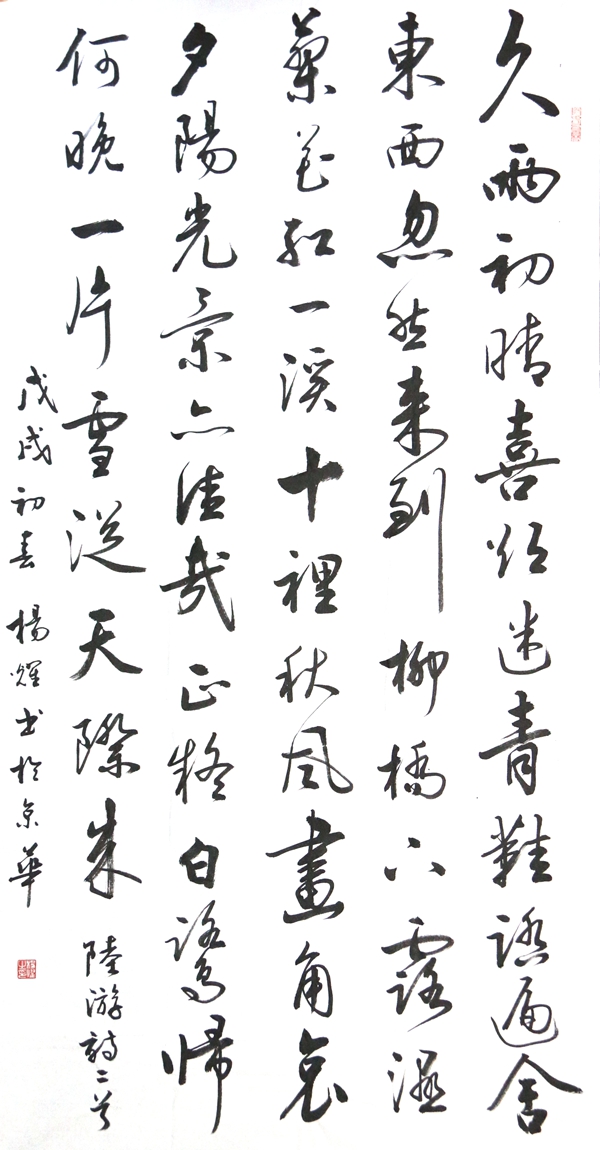 久雨初晴喜欲迷青鞋踏遍舍
東西忽然来到柳橋下露濕
蓼花紅一溪十裡秋風畫角哀
夕陽光景亦佳哉正疑白鷺歸
何晚一片雪從天際来
陸游詩二首
戊戌初春楊耀书於京華